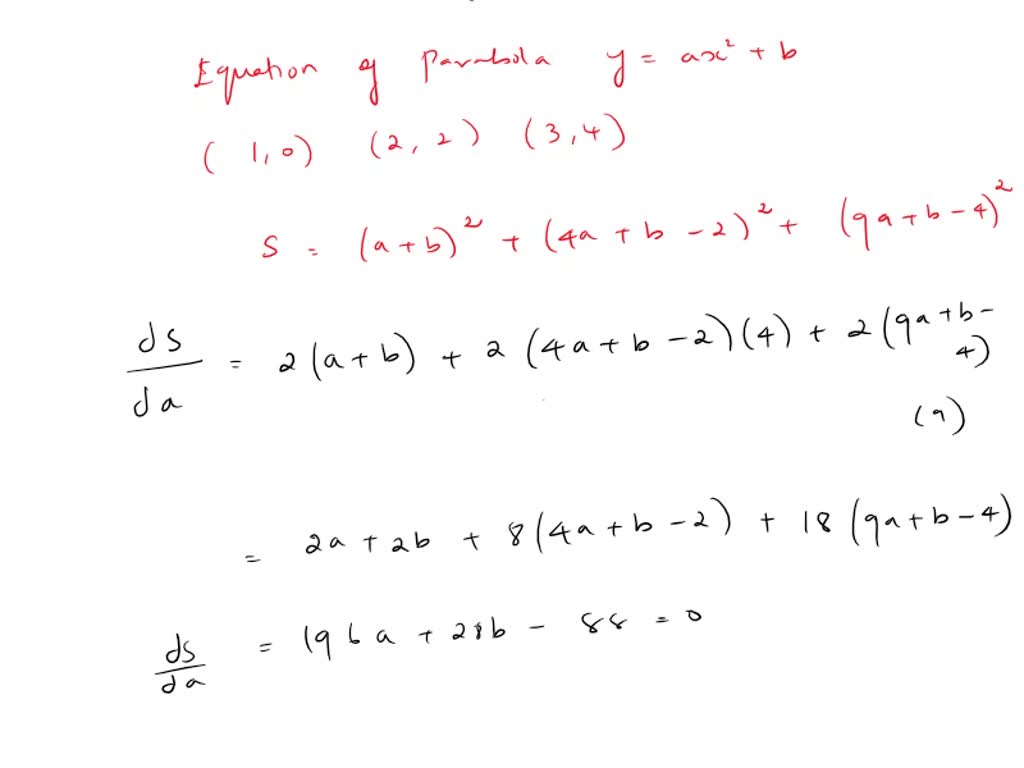 Equation of Parabola y = ax² + b
(1,0) (2,2) (3,4)
S = (a+b)² + (4a+b-2)² + (9a+b-4)²
ds/da = 2(a+b) + 2(4a+b-2)(4) + 2(9a+b-4)
(9)
= 2a+2b + 8(4a+b-2) + 18(9a+b-4)
ds/da = 196a + 28b - 88 = 0